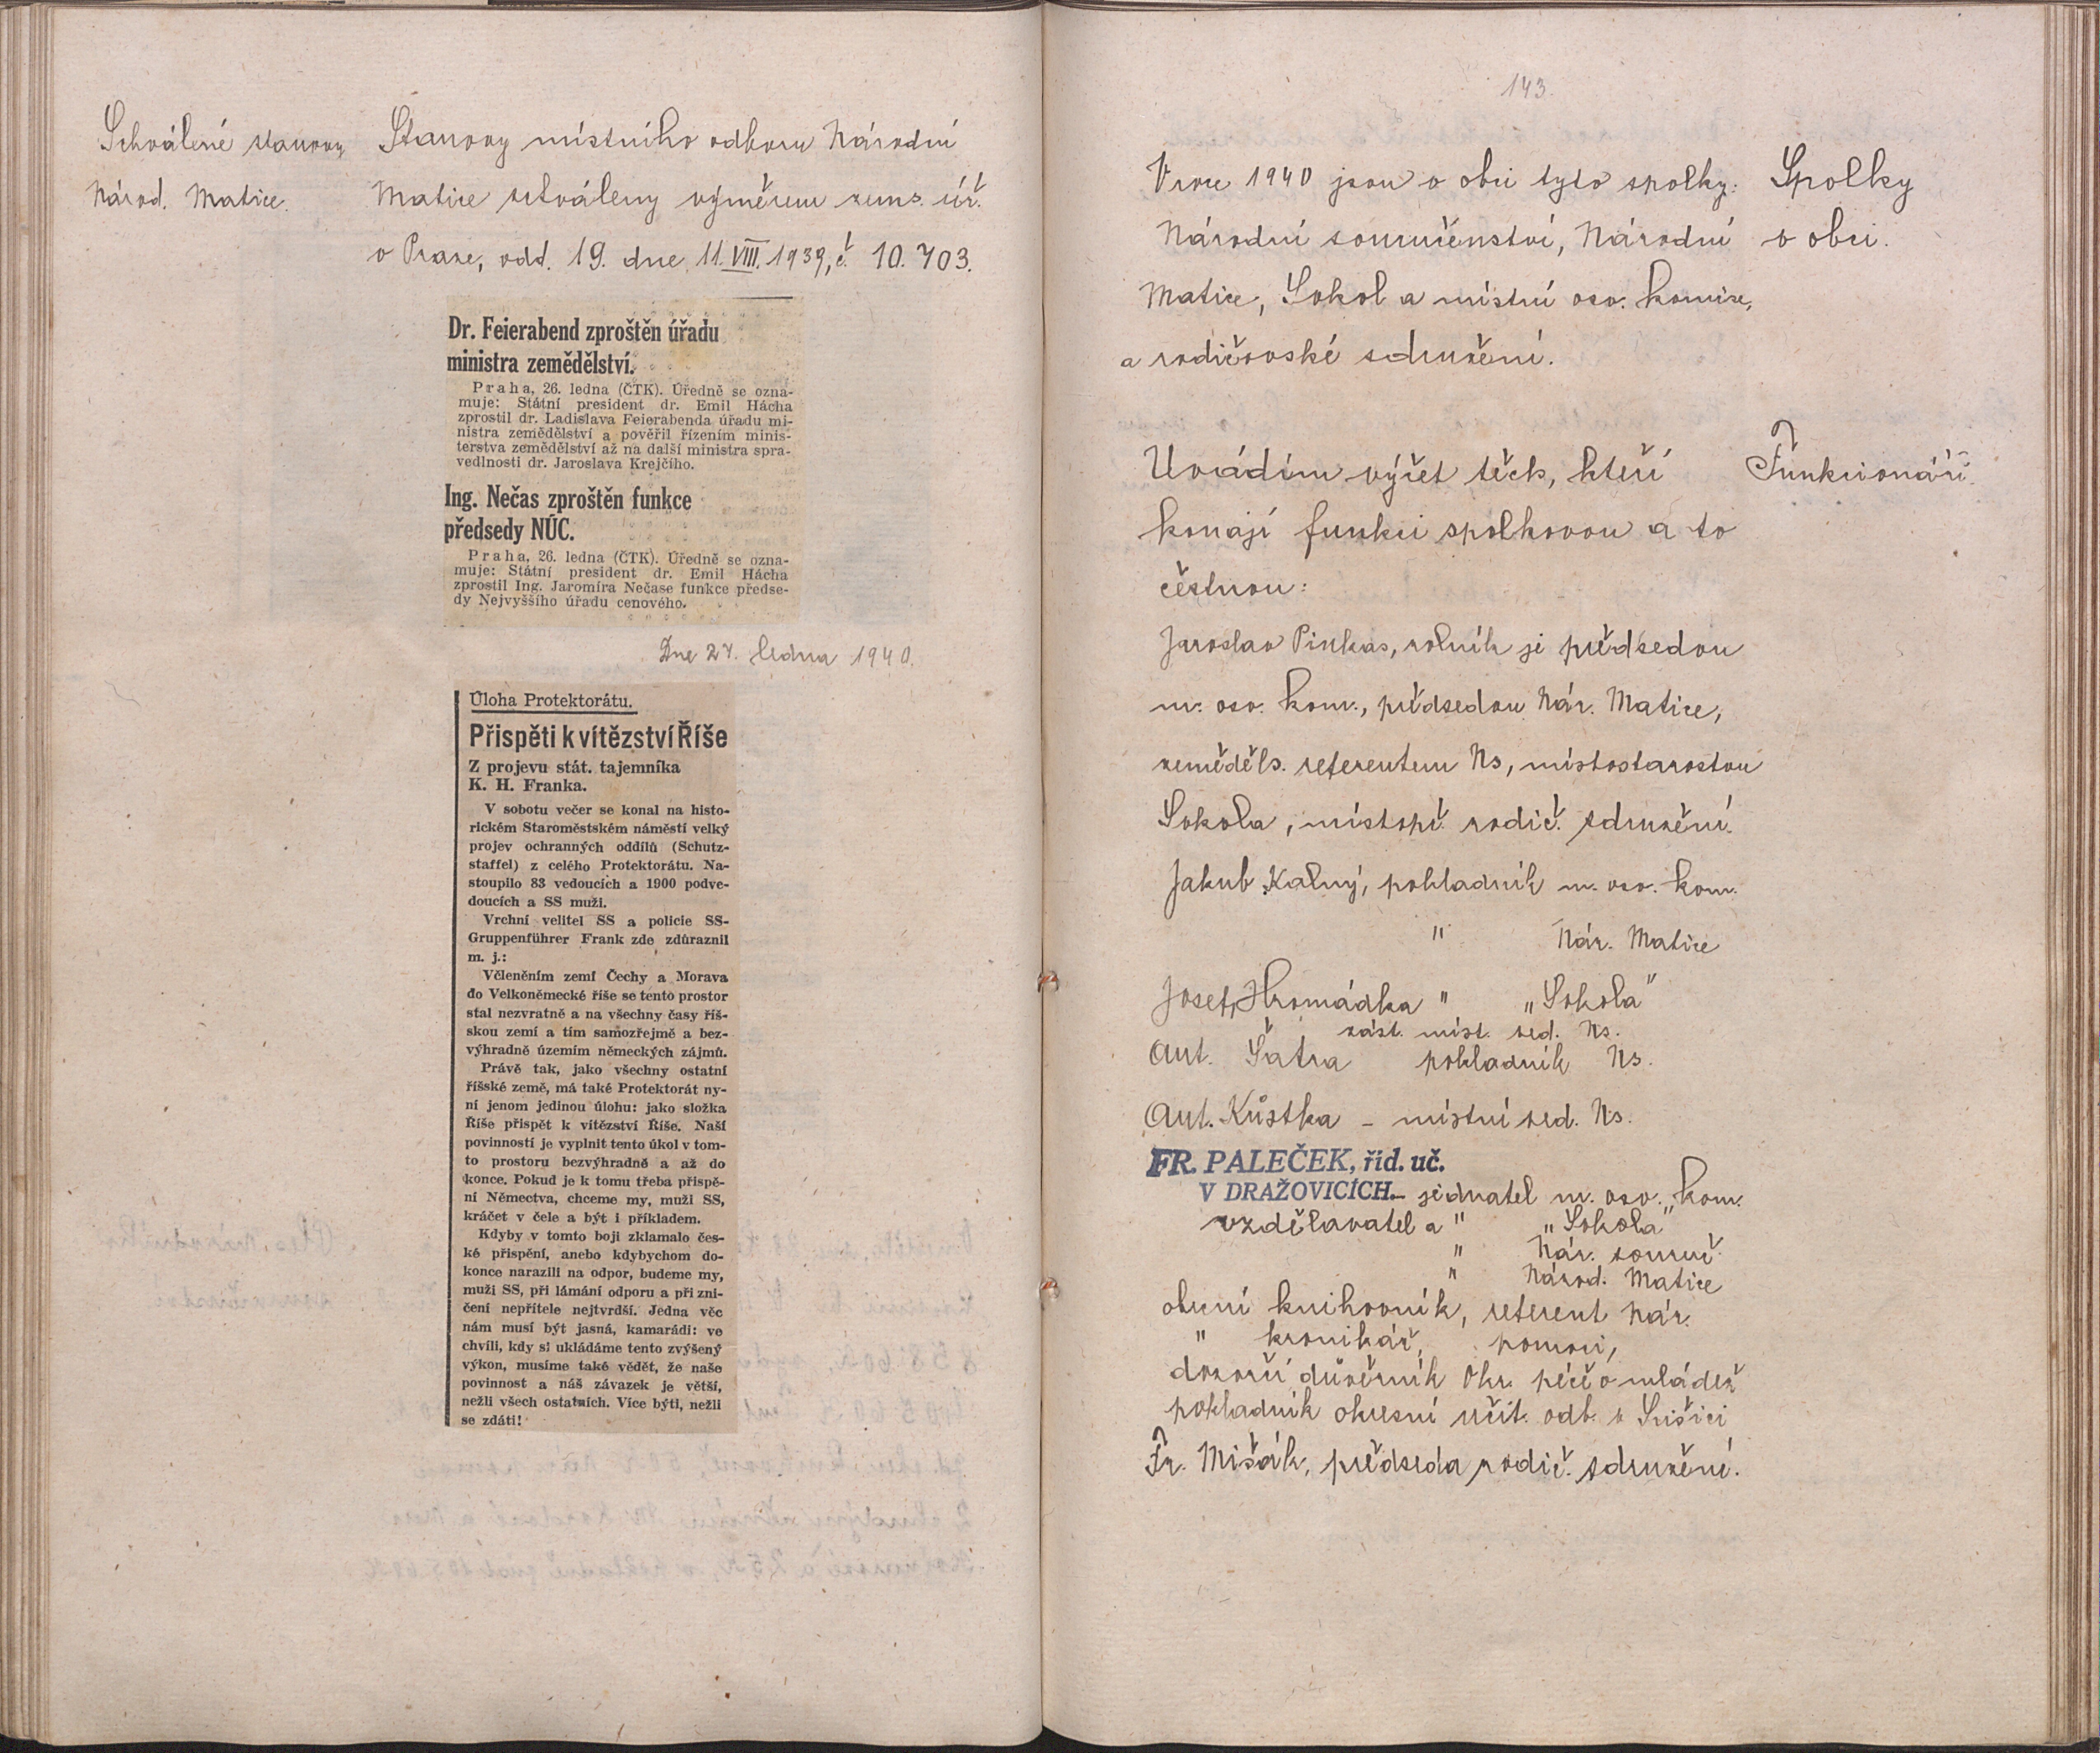 Schválené stanovy
Národ. Matice.
Stanovy místního odboru Národní
Matice schváleny výměrem zems. úř.
v Praze, odd. 19. dne 11. VIII. 1939, č. 10.703.
Dr. Feierabend zproštěn úřadu
ministra zemědělství.
Praha, 26. ledna (ČTK). Úředně se ozna-
muje: Státní president dr. Emil Hácha
zprostil dr. Ladislava Feierabenda úřadu mi-
nistra zemědělství a pověřil řízením minis-
terstva zemědělství až na další ministra spra-
vedlnosti dr. Jaroslava Krejčího.
Ing. Nečas zproštěn funkce
předsedy NÚC.
Praha, 26. ledna (ČTK). Úředně se ozna-
muje: Státní president dr. Emil Hácha
zprostil Ing. Jaromíra Nečase funkce předse-
dy Nejvyššího úřadu cenového.
Dne 27. ledna 1940.
Úloha Protektorátu.
Přispěti k vítězství Říše
Z projevu stát. tajemníka
K. H. Franka.
V sobotu večer se konal na histo-
rickém Staroměstském náměstí velký
projev ochranných oddílů (Schutz-
staffel) z celého Protektorátu. Na-
stoupilo 83 vedoucích a 1900 podve-
doucích a SS muži.
Vrchní velitel SS a policie SS-
Gruppenführer Frank zde zdůraznil
m. j.:
Včleněním zemí Čechy a Morava
do Velkoněmecké říše se tento prostor
stal nezvratně a na všechny časy říš-
skou zemí a tím samozřejmě a bez-
výhradně územím německých zájmů.
Právě tak, jako všechny ostatní
říšské země, má také Protektorát ny-
ní jenom jedinou úlohu: jako složka
Říše přispět k vítězství Říše. Naší
povinností je vyplnit tento úkol v tom-
to prostoru bezvýhradně a až do
konce. Pokud je k tomu třeba přispě-
ní Němectva, chceme my, muži SS,
kráčet v čele a být i příkladem.
Kdyby v tomto boji zklamalo čes-
ké přispění, anebo kdybychom do-
konce narazili na odpor, budeme my,
muži SS, při lámání odporu a při zni-
čení nepřítele nejtvrdší. Jedna věc
nám musí být jasná, kamarádi: ve
chvíli, kdy si ukládáme tento zvýšený
výkon, musíme také vědět, že naše
povinnost a náš závazek je větší,
nežli všech ostatních. Více býti, nežli
se zdáti!
143.
V roce 1940 jsou v obci tyto spolky:
Národní souručenství, Národní
Matice, Sokol a místní osv. komise,
a rodičovské sdružení.
Spolky
v obci.
Uvádím výčet těch, kteří
konají funkci spolkovou a to
čestnou:
Funkcionáři.
Jaroslav Pinkas, rolník je předsedou
m. osv. kom., předsedou Nár. Matice,
zeměděls. referentem Ns, místostarostou
Sokola, místopř. rodič. sdružení.
Jakub Kalný, pokladník m. osv. kom.
" Nár. Matice
Josef Hromádka " "Sokola"
zást. míst. ved. Ns.
Ant. Šatra pokladník Ns.
Ant. Kůstka - místní ved. Ns.
FR. PALEČEK, říd. uč.
V DRAŽOVICÍCH. - jednatel m. osv. kom.
vzdělavatel a " "Sokola"
" Nár. souruč.
" Národ. Matice
obecní knihovník, referent Nár.
" kronikář, pomoci,
dozorčí důvěrník Okr. péče o mládež
pokladník okresní učit. odb. v Sušici
Fr. Mišák, předseda rodič. sdružení.